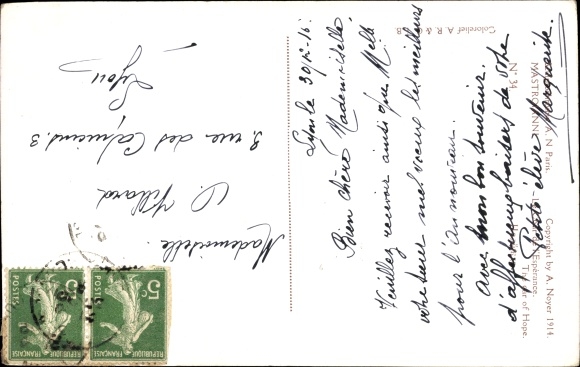 Lyon le 30/12-16.
Bien chère Mademoiselle,
Veuillez recevoir ainsi que Melle
votre sœur mes vœux les meilleurs
pour l'an nouveau.
Avec mon bon souvenir.
d'affectueux baisers de votre
petite élève Marguerite.
Mademoiselle
D. Villard
3 rue des Capucins. 3
Lyon
5c
POSTES
REPUBLIQUE FRANÇAISE
5c
POSTES
REPUBLIQUE FRANÇAISE
Colorelief A. R. & C. B
N° 34
MASTROIANNI
A. N Paris.
Espérance.
of Hope.
Copyright by A. Noyer 1914.